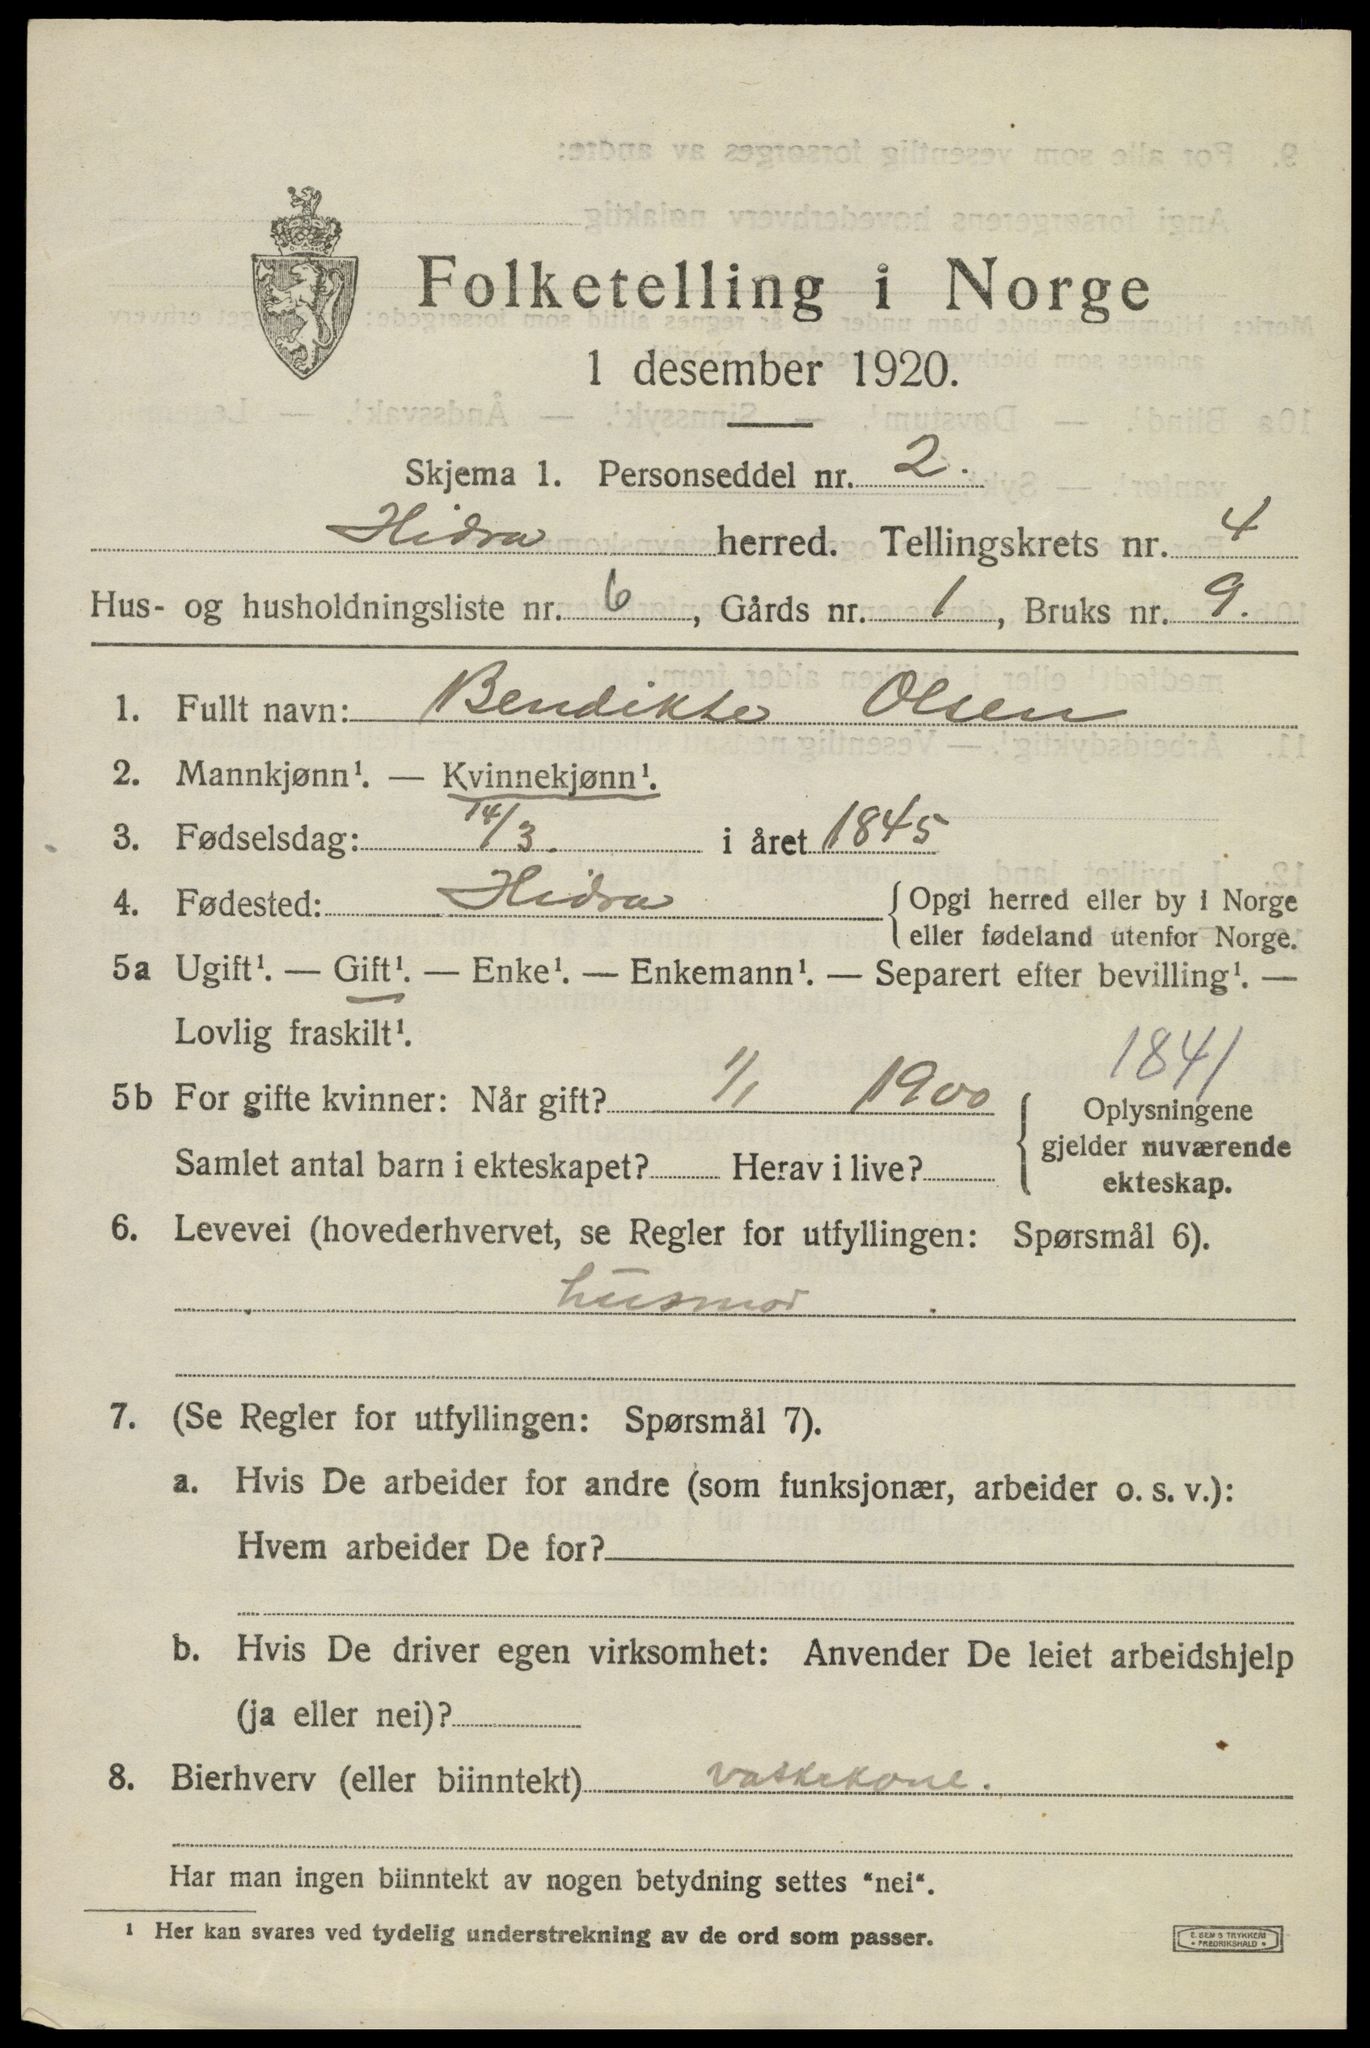 Folketelling i Norge
1 desember 1920.
Skjema 1. Personseddel nr. 2.
Hidra herred. Tellingskrets nr. 4
Hus- og husholdningsliste nr. 6, Gårds nr. 1, Bruks nr. 9.
1. Fullt navn: Bendikte Olsen
2. Mannkjønn¹. — Kvinnekjønn¹.
3. Fødselsdag: 14/3. i året 1845
4. Fødested: Hidra { Opgi herred eller by i Norge
eller fødeland utenfor Norge.
5a Ugift¹. — Gift¹. — Enke¹. — Enkemann¹. — Separert efter bevilling¹. —
Lovlig fraskilt¹.
1841
5b For gifte kvinner: Når gift? 1/1 1900 { Oplysningene
gjelder nuværende
Samlet antal barn i ekteskapet? Herav i live?
ekteskap.
6. Levevei (hovederhvervet, se Regler for utfyllingen: Spørsmål 6).
husmor
7. (Se Regler for utfyllingen: Spørsmål 7).
a. Hvis De arbeider for andre (som funksjonær, arbeider o. s. v.):
Hvem arbeider De for?
b. Hvis De driver egen virksomhet: Anvender De leiet arbeidshjelp
(ja eller nei)?
8. Bierhverv (eller biinntekt) vaskekone.
Har man ingen biinntekt av nogen betydning settes "nei".
¹ Her kan svares ved tydelig understrekning av de ord som passer.
E. SEM'S TRYKKERI
• FREDRIKSHALD •